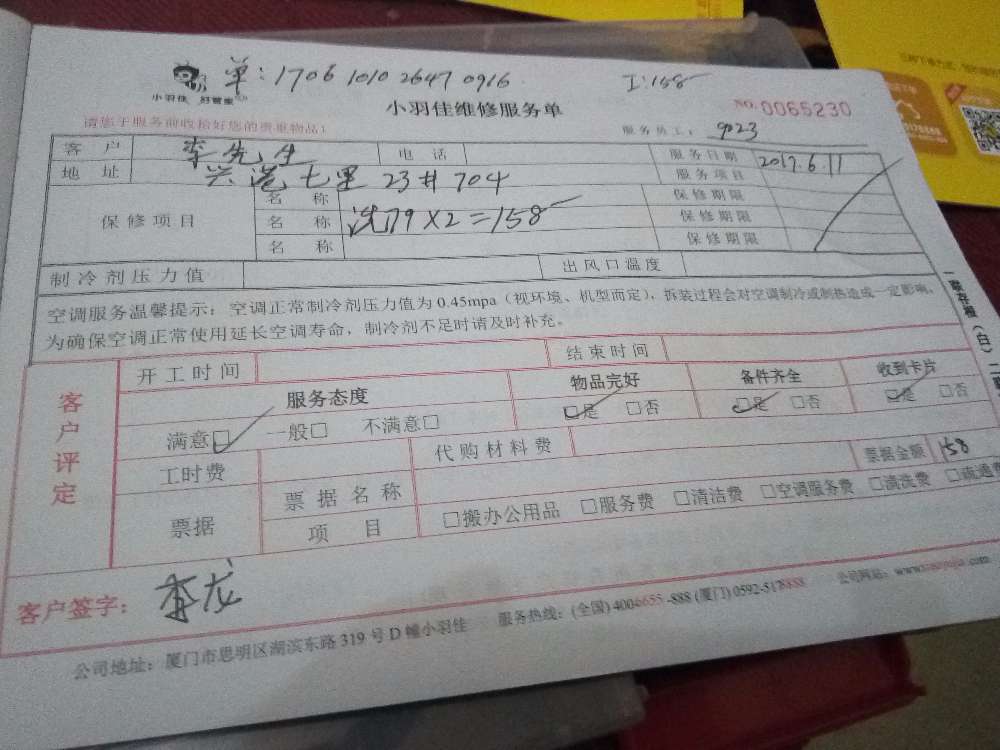 单:1706 1010 2647 0916 工:158
小羽佳 好管家
小羽佳维修服务单 NO.0065230
请您于服务前收拾好您的贵重物品! 服务员工: 9023
客户 李先生 电话 服务日期 2017.6.11
地址 兴港七里 23# 704 服务项目
保修项目 名称 保修期限
名称 洗79×2=158 保修期限
名称 保修期限
制冷剂压力值 出风口温度
空调服务温馨提示:空调正常制冷剂压力值为0.45mpa(视环境、机型而定),拆装过程会对空调制冷或制热造成一定影响,
为确保空调正常使用延长空调寿命,制冷剂不足时请及时补充。
一联存根(白)二
客户评定
开工时间 结束时间
服务态度 物品完好 备件齐全 收到卡片
满意□ 一般□ 不满意□ □是 □否 □是 □否 □是 □否
工时费 代购材料费 票据金额 158
票据 票据名称
项目 □搬办公用品 □服务费 □清洁费 □空调服务费 □清洗费 □疏通费
客户签字: 李龙
公司地址:厦门市思明区湖滨东路319号D幢小羽佳 服务热线:(全国)4006655-888 (厦门)0592-5178888 公司网站:www.xiaoyujia.com